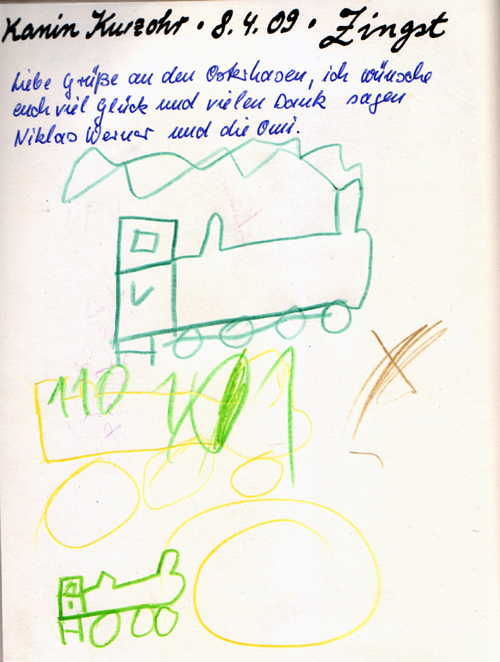 Kanin Kurzohr • 8.4.09 • Zingst
Liebe Grüße an den Osterhasen, ich wünsche
euch viel Glück und vielen Dank sagen
Niklas Werner und die Omi.
110 101